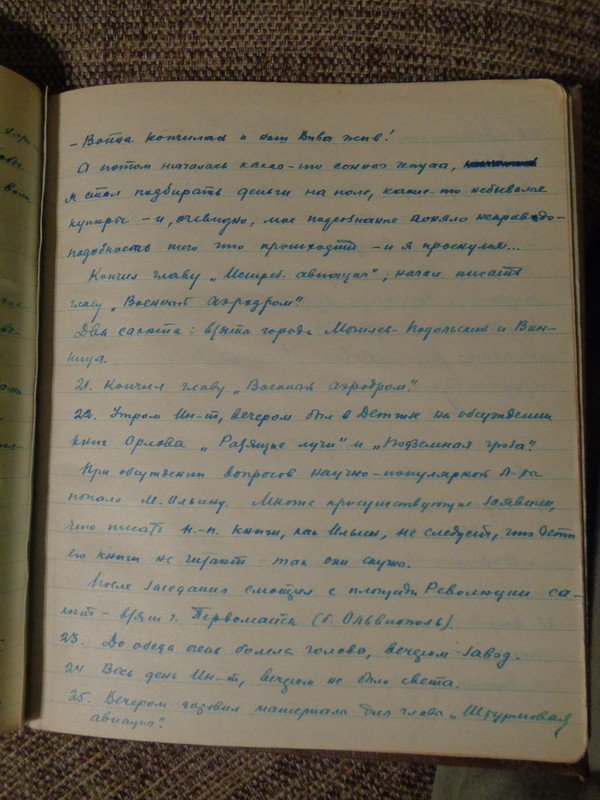 – Война кончилась и наш Вива жив!
А потом началась какая-то сонная чепуха,
я стал подбирать деньги на поле, какие-то небывалые
купюры – и, очевидно, мое подсознание поняло неправдо-
подобность того что происходит – и я проснулся...
Кончил главу „Истреб. авиация"; начал писать
главу „Военный аэродром".
Два салюта: взяты города Могилев-Подольский и Вин-
ница.
21. Кончил главу „Военный аэродром".
22. Утром Ин-т, вечером был в Детгизе на обсуждении
книг Орлова „Разящие лучи" и „Подземная гроза".
При обсуждении вопросов научно-популярной л-ры
попало М. Ильину. Многие присутствующие заявили,
что писать н.-п. книги, как Ильин, не следует, что дети
его книги не читают – так они скучны.
После заседания смотрел с площади Революции са-
лют – взят г. Первомайск (б. Ольвиополь).
23. До обеда очень болела голова, вечером завод.
24. Весь день Ин-т, вечером не было света.
25. Вечером готовил материалы для главы „Штурмовая
авиация".